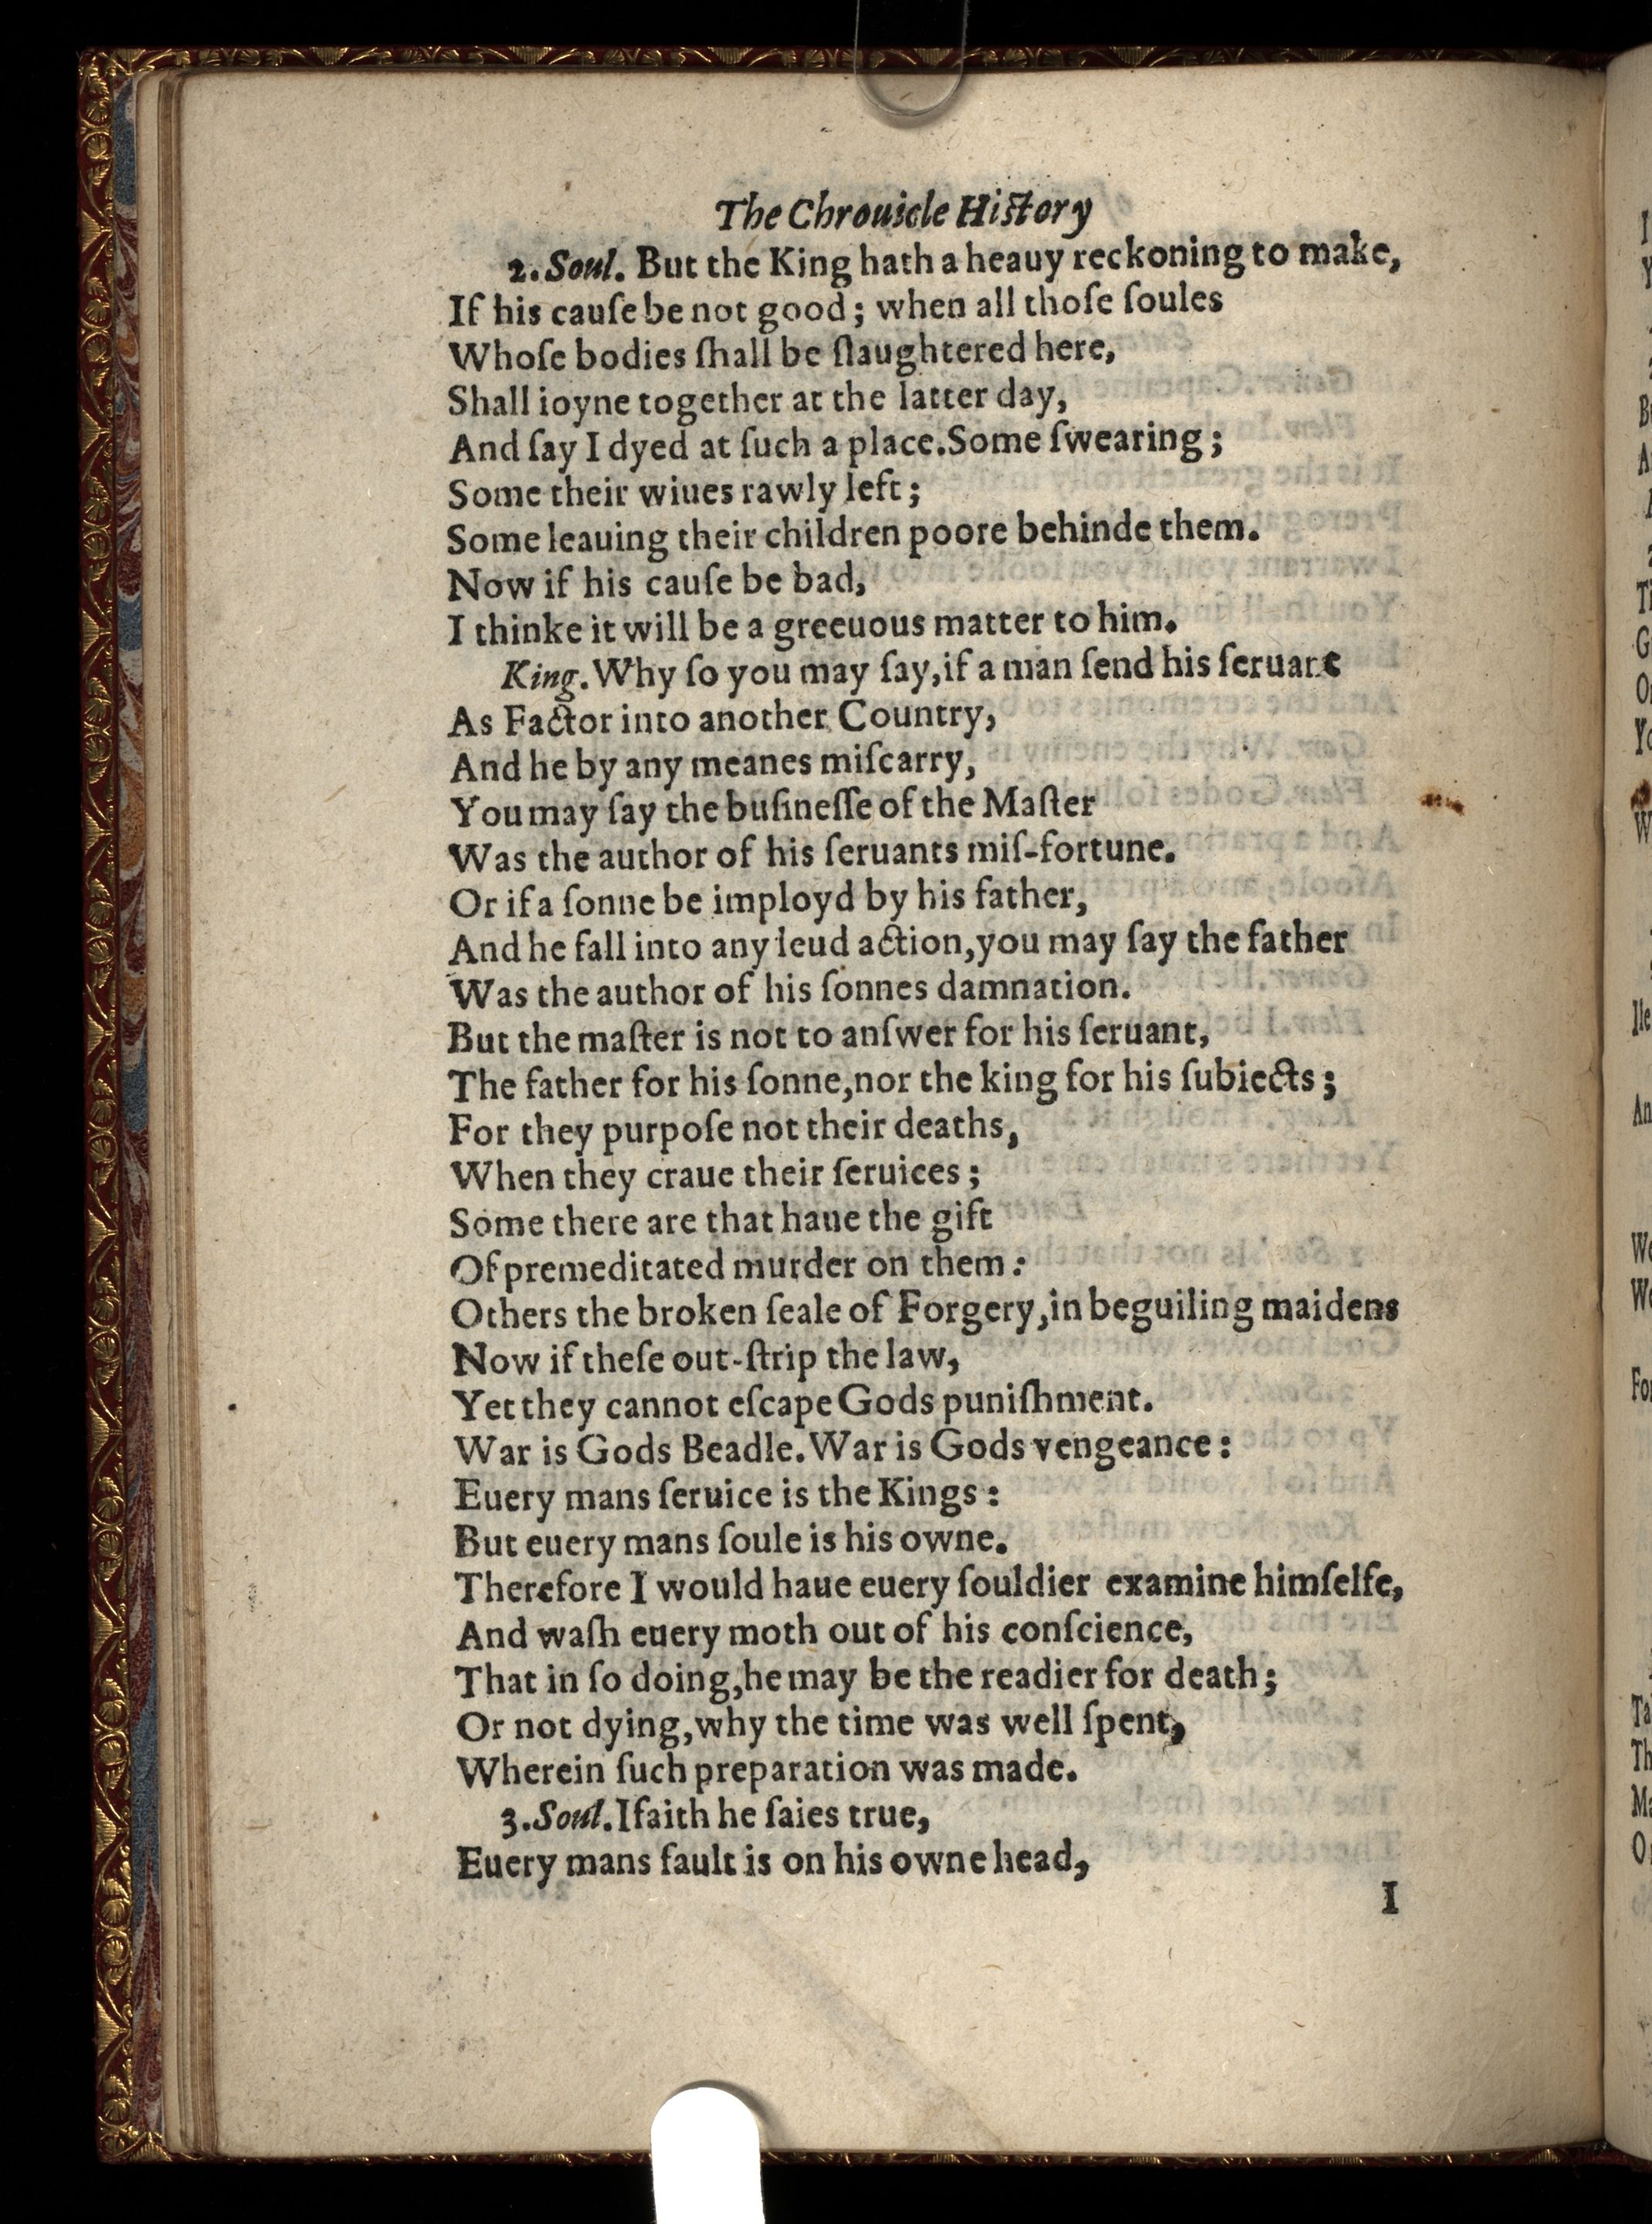 The Chrouicle Hiſtory
2. Soul. But the King hath a heauy reckoning to make,
If his cauſe be not good; when all thoſe ſoules
Whoſe bodies ſhall be ſlaughtered here,
Shall ioyne together at the latter day,
And ſay I dyed at ſuch a place. Some ſwearing;
Some their wiues rawly left;
Some leauing their children poore behinde them.
Now if his cauſe be bad,
I thinke it will be a greeuous matter to him.
King. Why ſo you may ſay, if a man ſend his ſeruant
As Factor into another Country,
And he by any meanes miſcarry,
You may ſay the buſineſſe of the Maſter
Was the author of his ſeruants miſ-fortune.
Or if a ſonne be imployd by his father,
And he fall into any leud action, you may ſay the father
Was the author of his ſonnes damnation.
But the maſter is not to anſwer for his ſeruant,
The father for his ſonne, nor the king for his ſubiects;
For they purpoſe not their deaths,
When they craue their ſeruices;
Some there are that haue the gift
Of premeditated murder on them:
Others the broken ſeale of Forgery, in beguiling maidens
Now if theſe out-ſtrip the law,
Yet they cannot eſcape Gods puniſhment.
War is Gods Beadle. War is Gods vengeance:
Euery mans ſeruice is the Kings:
But euery mans ſoule is his owne.
Therefore I would haue euery ſouldier examine himſelfe,
And waſh euery moth out of his conſcience,
That in ſo doing, he may be the readier for death;
Or not dying, why the time was well ſpent,
Wherein ſuch preparation was made.
3. Soul. Ifaith he ſaies true,
Euery mans fault is on his owne head,
I